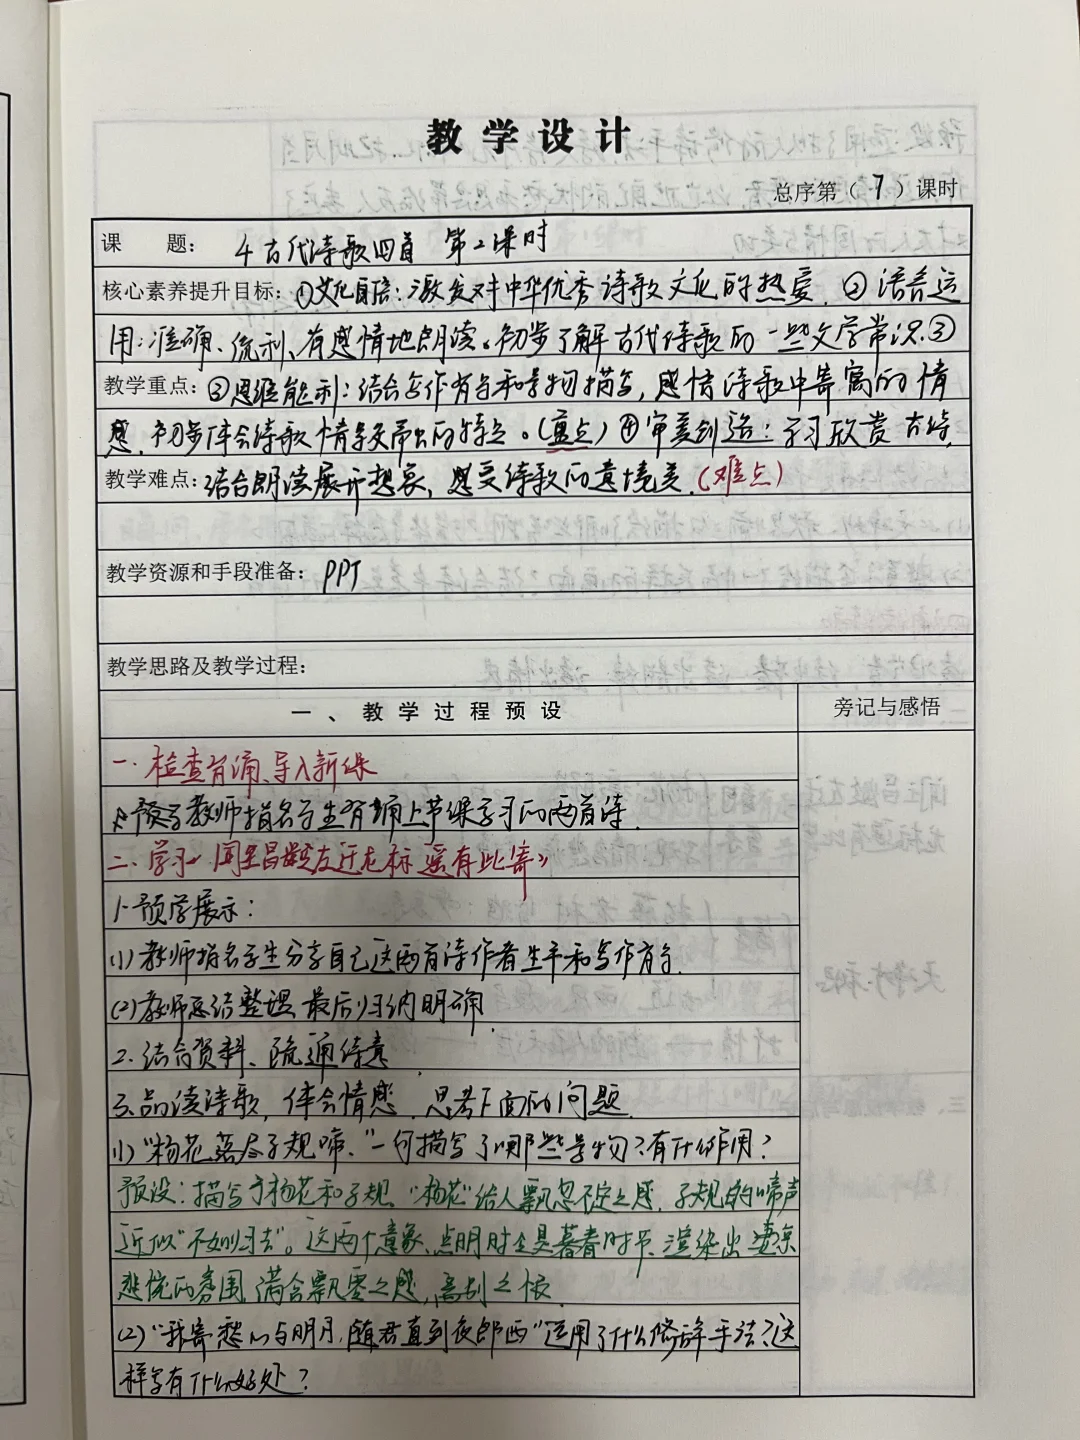 教学设计
总序第（7）课时
课 题： 4 古代诗歌四首 第2课时
核心素养提升目标：①文化自信：激发对中华优秀诗歌文化的热爱。②语言运
用：准确、流利、有感情地朗读。初步了解古代诗歌的一些文学常识。③
教学重点：③思维能力：结合写作背景和景物描写，感悟诗歌中寄寓的情
感，初步体会诗歌情景交融的特点。（重点）④审美创造：学习欣赏古诗，
教学难点：结合朗读展开想象，感受诗歌的意境美。（难点）
教学资源和手段准备：PPT
教学思路及教学过程：
一、教学过程预设 旁记与感悟
一. 检查背诵、导入新课
教师指名学生背诵上节课学习的两首诗.
二. 学习《闻王昌龄左迁龙标遥有此寄》
1. 预学展示：
(1) 教师指名学生分享自己这两首诗作者生平和写作背景.
(2) 教师总结整理,最后归纳明确.
2. 结合资料、疏通诗意.
3. 品读诗歌，体会情感，思考下面的问题.
(1) "杨花落尽子规啼，"一句描写了哪些景物？有什么作用？
预设：描写了杨花和子规. "杨花"给人飘忽不定之感，子规的啼声
近似"不如归去"。这两个意象，点明时令是暮春时节、渲染出凄凉
悲慌的氛围，满含飘零之感，离别之恨.
(2) "我寄愁心与明月，随君直到夜郎西"运用了什么修辞手法？这
样写有什么好处？